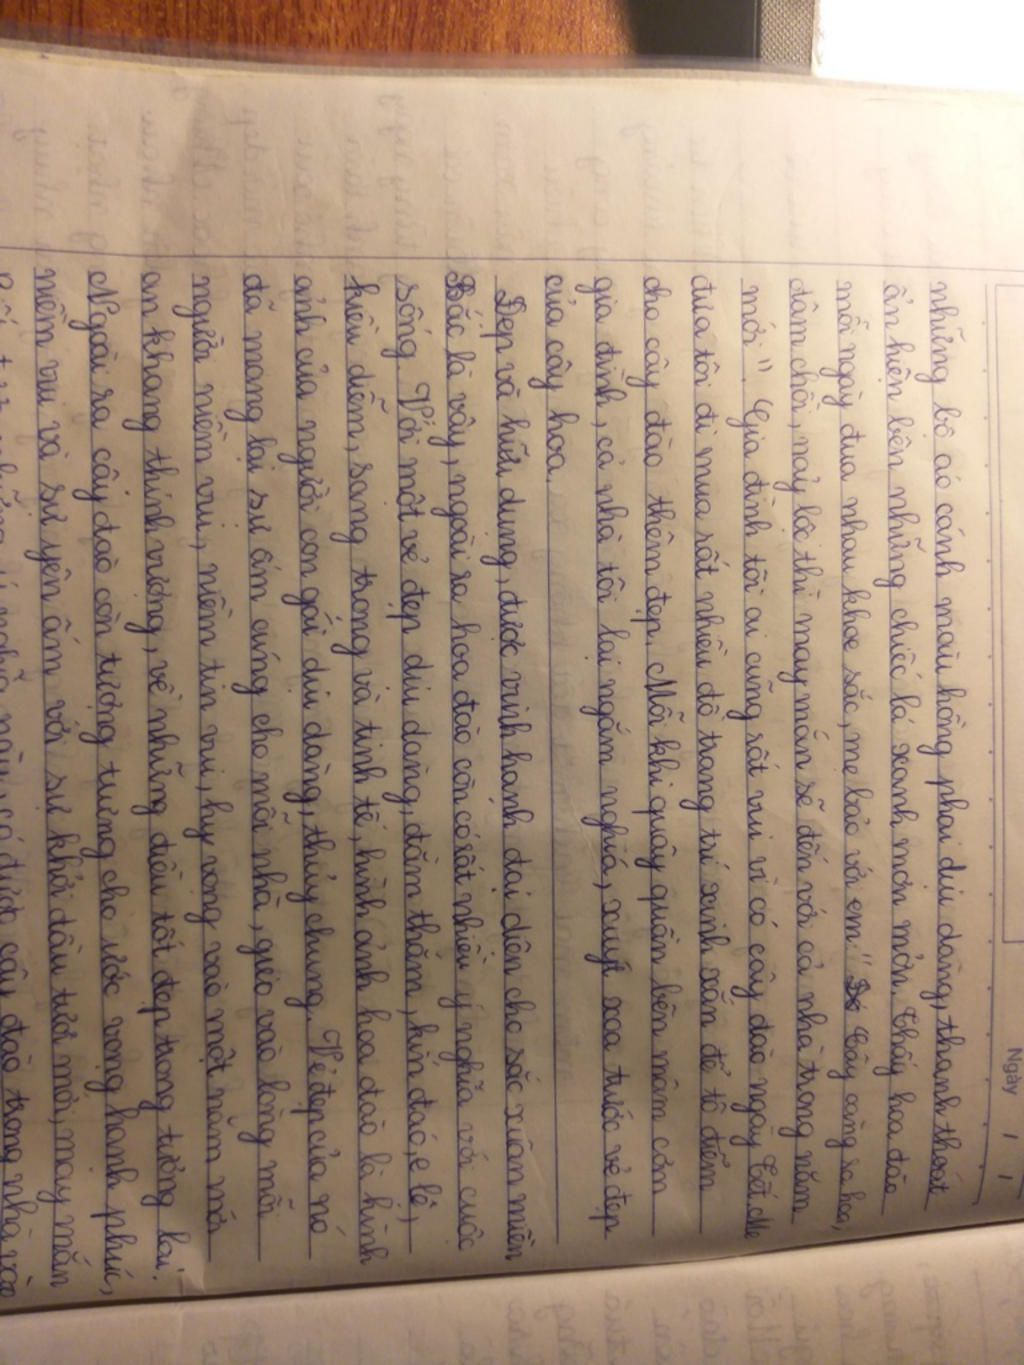 Ngày / /
những bộ áo cánh màu hồng phai dịu dàng, thanh thoát
ẩn hiện bên những chiếc lá xanh mơn mởn. Thấy hoa đào
mỗi ngày đua nhau khoe sắc, mẹ bảo với em: " Cây càng ra hoa,
đâm chồi, nảy lộc thì may mắn sẽ đến với cả nhà trong năm
mới". Gia đình tôi ai cũng rất vui vì có cây đào ngày Tết. Mẹ
đưa tôi đi mua rất nhiều đồ trang trí xinh xắn để tô điểm
cho cây đào thêm đẹp. Mỗi khi quây quần bên mâm cơm
gia đình, cả nhà tôi lại ngắm nghía, xuýt xoa trước vẻ đẹp
của cây hoa.
Đẹp và hữu dụng, được vinh hạnh đại diện cho sắc xuân miền
Bắc là vậy, ngoài ra hoa đào còn có rất nhiều ý nghĩa với cuộc
sống. Với một vẻ đẹp dịu dàng, đằm thắm, kín đáo, e lệ,
kiều diễm, sang trọng và tinh tế, hình ảnh hoa đào là hình
ảnh của người con gái dịu dàng, thủy chung. Vẻ đẹp của nó
đã mang lại sự ấm cúng cho mỗi nhà, gieo vào lòng mỗi
người niềm vui, niềm tin vui, hy vọng vào một năm mới
an khang thịnh vượng, về những điều tốt đẹp trong tương lai.
Ngoài ra cây đào còn tượng trưng cho ước vọng hạnh phúc,
niềm vui và sự yên ấm với sự khởi đầu tươi mới, may mắn
những ý nghĩa này, có được cây đào trong nhà vào